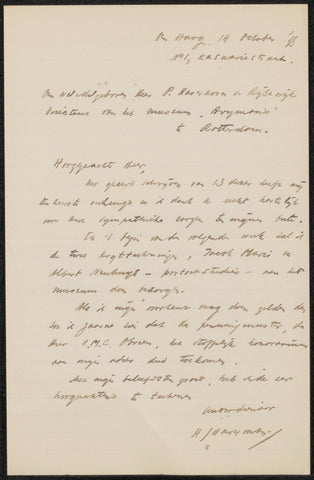 Den Haag, 14 October '93
No 1, Kasuariestraat.
Den weledelgeboren Heer P. Haverkorn v. Rijsewijk
Directeur van het museum "Boymans"
te Rotterdam.
Hooggeachte Heer,
Uw geëerd schrijven van 13 dezer heeft mij
ten zeerste verheugd en ik dank u echt hartelijk
voor Uwe sympathieke zorgen te mijnen bate.
In 't begin van de volgende week zal ik
de twee krijtteekeningen, Jacob Maris en
Albert Neuhuys - portretstudies - aan het
museum doen bezorgen.
Als ik mijn voorkeur mag doen gelden dan
zou ik gaarne zien dat de penningmeester, de
Heer I.M.C. Obreen, het honorarium
aan mijn adres doet toekomen.
Met mijn beleefden groet, heb ik de eer
hoogachtend te teekenen
Uw dw dienaar
H J Haverman